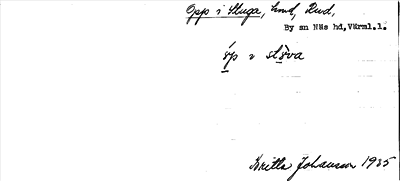 Opp i Stuga, hmd, Rud,
By sn Näs hd, Värml.l.
óp i stòva
Britta Johansson 1935